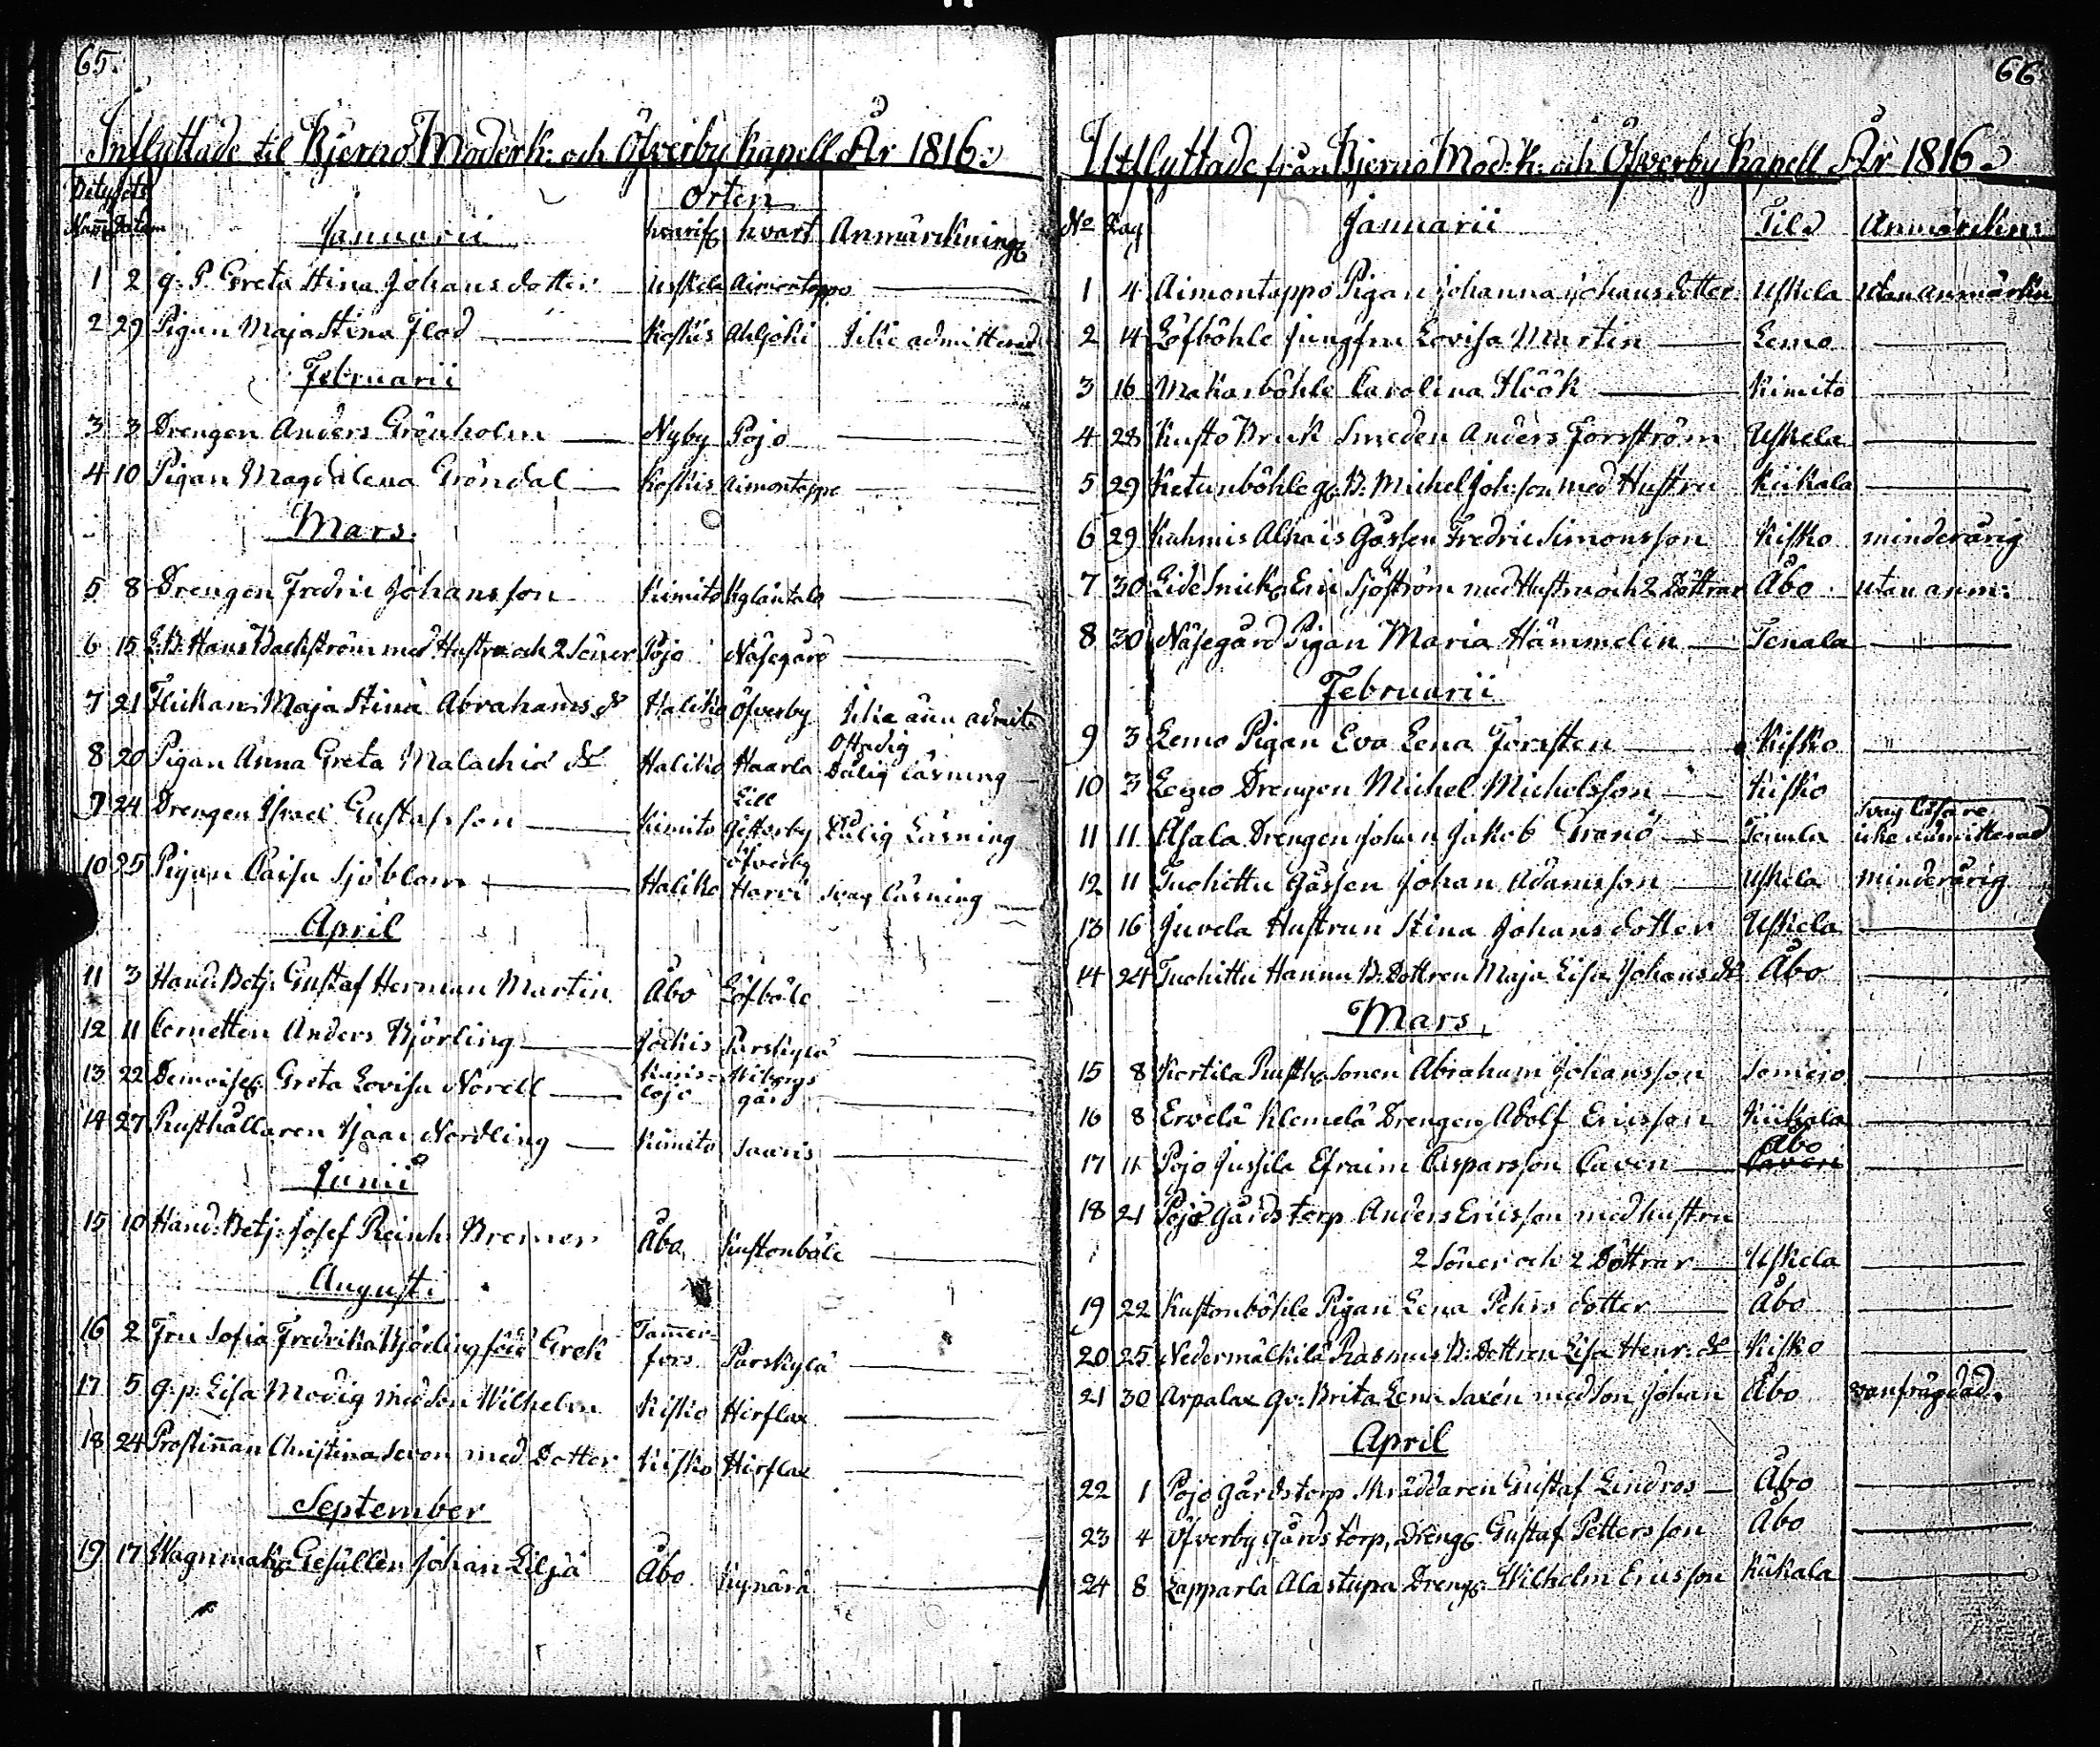 65.
Inflyttade til Bjerno Moderk: och Öfverby Kapell År 1816.
Betygets Orten
Num̄: Datum Januarii hvarifr. hvart Anmärkning
1 2 g: P. Greta Stina Johansdotter Uskela Aimontappo
2 29 Pigan Maja Stina Flod Koskis Ahljoki Icke admitterad
Februarii
3 3 Drengen Anders Grönholm Nyby Pojo
4 10 Pigan Magdalena Gröndal Koskis Aimontappo
Mars.
5 8 Drengen Fredric Johansson Kimito
6 15 Hans Backström med Hustru och 2 Söner Pojo Näsegård
7 21 Flickan Maja Stina Abrahams dr Haliko Öfverby Icke ännu admitt
8 20 Pigan Anna Greta Malachiæ dr Haliko Haarla Ostadig Dålig Läsning
9 24 Drengen Israel Gustafsson Kimito Lill Götterby Dålig Läsning
10 25 Pigan Caisa Sjöblom Haliko Öfverby Harvi Svag läsning
April
11 3 Hand: Betj: Gustaf Herman Martin Åbo Löfböle
12 11 Cornetten Anders Björling Jockis Parskylä
13 22 Demoisel. Greta Lovisa Norell Karis-lojo Wibergs gård
14 27 Rusthållaren Isaac Nordling Kimito Saaris
Junii
15 10 Hand: Betj: Josef Reinh. Bremer Åbo Kustonböle
Augusti
16 2 Fru Sofia Fredrika Björling född Grek Tam̄er-fors Parskylä
17 5 g: p: Lisa Modig med Son Wilhelm Kisko Hirslax
18 24 Prostin̄an Christina Sevon med Dotter Kisko Hirslax
September
19 17 Wagnmak. Gesällen Johan Lilja Åbo Kynärä
66.
Utflyttade från Bjerno Mod: K: och Öfverby Kapell År 1816.
No Dag Januarii Til Anmärkn:
1 4 Aimontappo Pigan Johanna Johansdotter Uskela utan anmärkn
2 14 Löfböhle Jungfru Lovisa Martin Lemo
3 16 Makarböhle Carolina Höök Kimito
4 28 Kusto Bruk Smeden Anders Forsström Uskela
5 29 Ketunböhle g. B: Michel Joh:son med Hustru Kiikala
6 29 Kuhmis Alhais Gåssen Fredric Simonsson Kisko minderårig
7 30 Lide Snick. Eric Sjöström med Hustru och 2 Döttrar Åbo utan anm:
8 30 Näsegård Pigan Maria Hämmelin Tenala
Februarii
9 3 Lemo Pigan Eva Lena Forsten Kisko
10 3 Lemo Drengen Michel Michelsson Kisko
11 11 Åsala Drengen Johan Jakob Granö Tenala Svag läsare icke admitterad
12 11 Tuohittu Gåssen Johan Adamsson Uskela minderårig
13 16 Juvela Hustrun Stina Johansdotter Uskela
14 24 Tuohittu Hannu B: Dottren Maja Lisa Johans dr Åbo
Mars
15 8 Kertila Rusth. Sonen Abraham Johansson Somero
16 8 Ervelä Klemelä Drengen Adolf Ericsson Kiikala
17 11 Pojo Jussila Efraim Casparsson Caven Åbo
18 21 Pojo Gårdstorp Anders Ericsson med hustru
2 Söner och 2 Döttrar Uskela
19 22 Kustonböhle Pigan Lena Pehrs dotter Åbo
20 25 Nedermälkilä Rasmus B: Dottren Lisa Henr: dr Kisko
21 30 Arpalax Qv: Brita Lena Saxén med Son Johan Åbo vanfrägdad.
April
22 1 Pojo Gårdstorp Skräddaren Gustaf Lindros Åbo
23 4 Öfverby Gårdstorp, Dreng. Gustaf Pettersson Åbo
24 8 Lapparla Alastupa Dreng. Wilhelm Ericsson Kiikala